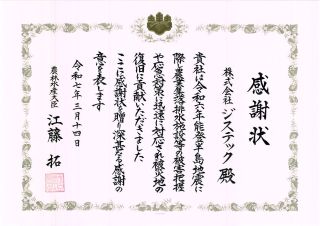 感謝状
株式会社 ジステック 殿
貴社は令和六年能登半島地震に
際し農業集落排水施設等の被害把握
や応急対策に迅速に対応され被災地の
復旧に貢献いただきました
ここに感謝状を贈り深甚なる感謝の
意を表します
令和七年三月十四日
農林水産大臣 江藤 拓